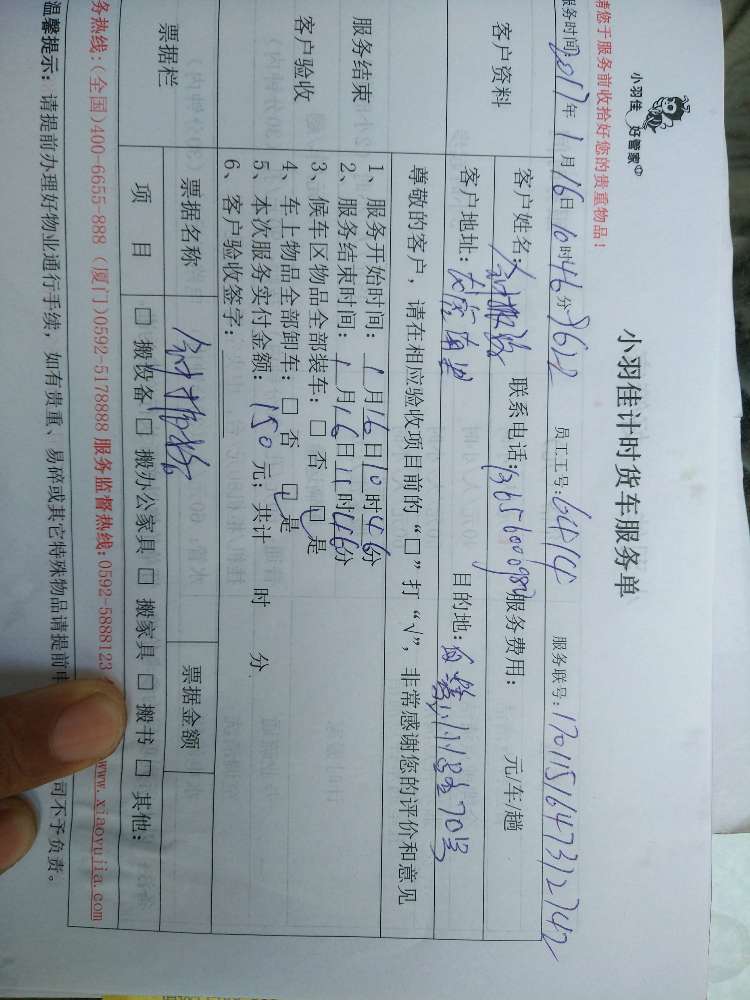 小羽佳 好管家
小羽佳计时货车服务单
请您于服务前收拾好您的贵重物品!
服务时间: 2017年1月16日10时46分 员工工号: 6414 服务联号:
客户资料
客户姓名: 联系电话: 服务费用: 元/车/趟
客户地址: 目的地:
尊敬的客户,请在相应验收项目前的“□”打“√”,非常感谢您的评价和意见
服务结束
客户验收
1、服务开始时间: 1月16日10时46分
2、服务结束时间: 1月16日11时46分
3、候车区物品全部装车: □ 否 □ 是
4、车上物品全部卸车: □ 否 □ 是
5、本次服务实付金额: 150元; 共计 时 分
6、客户验收签字:
票据栏
票据名称 票据金额
项 目 □ 搬设备 □ 搬办公家具 □ 搬家具 □ 搬书 □ 其他:
务热线:(全国)400-6655-888 (厦门)0592-5178888 服务监督热线:0592-5888123 www.xiaoyujia.com
温馨提示: 请提前办理好物业通行手续, 如有贵重、易碎或其它特殊物品请提前 司不予负责。